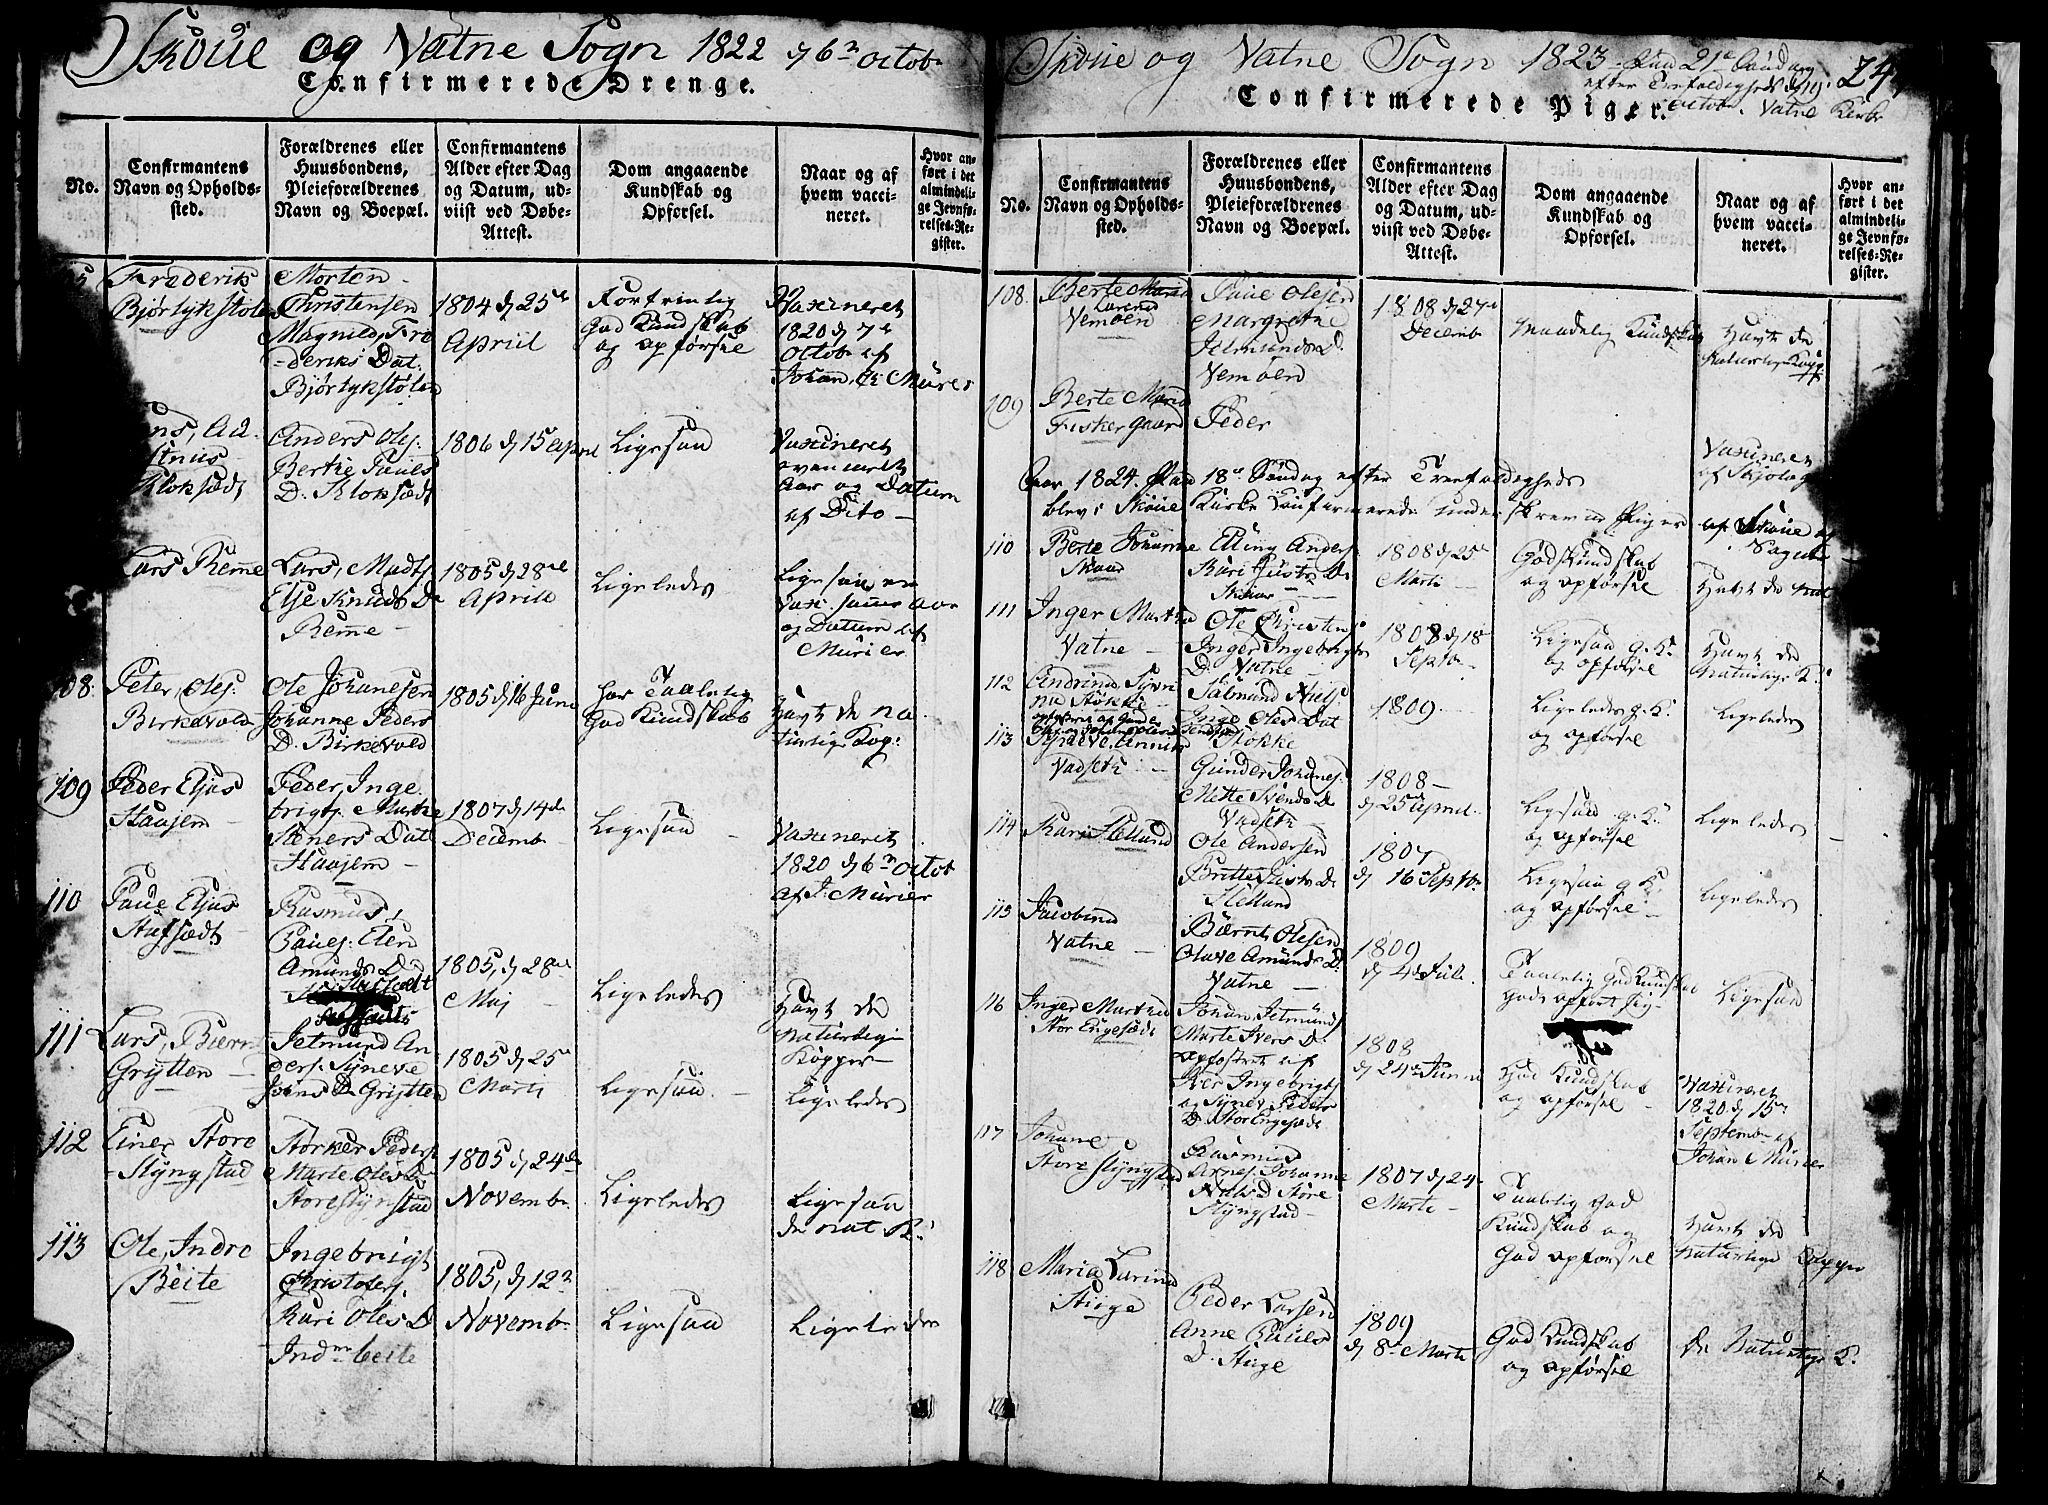 Skoüe og Vatne Sogn 1822 d 6te Octobr
Confirmerede Drenge.
No.
Confirmantens
Navn og Opholds-
sted.
Forældrenes eller
Huusbondens,
Pleieforældrenes
Navn og Boepæl.
Confirmantens
Alder efter Dag
og Datum, ud-
viist ved Døbe-
Attest.
Dom angaaende
Kundskab og
Opforsel.
Naar og af
hvem vacci-
neret.
Hvor an-
ført i det
almindeli-
ge Jevnfø-
relses-Re-
gister.
Frederik
Bjørlykstølen
Morten
Christensen
Magnild, Fre
-deriks Dat.
Bjørlykstølen
1804 d 25de
Apriil
Fortrinlig
God Kundskab
og opførsel
Vaxineret
1820 d 7de
Octobr af
Johan, de Mürer
Kloksædt
Anders Olsj.
Berthe Paües
D. Kloksædt
1806 d 15 April
Ligesaa
Vaxineret
ovenmelt
Aar og Datum
af Dito
Lars Remme
Lars, Madtz
Elje Knuds D
Remme
1805 d 28de
Apriil
Ligeledes
Ligesaa en
Vax. samme Aar
og Datum af
Mürier
108
Peter, Olsj.
Birkevold
Ole Johanesen
Johanne Peders
D. Birkevold
1805 d 16 Juni
har Taalelig
God Kundskab
Havt de na
turlige Kop:
109
Peder Eljas
Haajem
Peder, Inge
brigtz. Marthe
Steners Dat
Haajem
1807 d 14de
Decemb
Ligesaa
Vaxineret
1820 d 6te Octob
af J. Mürier
110
Paüe Eljas
Hafsædt
Rasmus,
Paües. Elen
Amunds D
1805, d 28de
Maj
Ligeledes
Havt de
Naturlige
Kopper
111
Lars, Bærnt
Grytten
Jetmund An
ders. Syneve
D Grytten
1805 d 25de
Marti
Ligesaa
Ligeledes
112
Einer Store
-Slyngstad
Størker Peders
Marte Oles D
Storeslynstad
1805 d 24de
Novembr
Ligeledes
Ligesaa
de nat K:
113
Ole, Indre
Beite
Ingebrigt
Christofers,
Kari Oles D
Indre beite
1805, d 12te
Novemb
Ligesaa
Ligeledes
Skoüe og Vatne Sogn 1823 Paa 21de Søndag
efter Trefoldigheds d 19
Octobr. Vatne Kirke
Confirmerede Piger.
No.
Confirmantens
Navn og Opholds-
sted.
Forældrenes eller
Huusbondens,
Pleieforældrenes
Navn og Boepæl.
Confirmantens
Alder efter Dag
og Datum, ud-
viist ved Døbe-
Attest.
Dom angaaende
Kundskab og
Opforsel.
Naar og af
hvem vacci-
neret.
Hvor an-
ført i det
almindeli-
ge Jevnfø-
relses-Re-
gister.
108.
Berte Maria
Larena
Vemøen
Paüe Olsjen
Margrethe
Jetmunds D.
Vemøen
1808 d 27de
Decemb
Maadelig Kundskab
Havt de
Naturlige Kop
109
Berte Maria
Fiskergaard
Peder
Vaxineret
Aar 1824. Paa 18de Søndag efter Trefoldigheds
blev i Skoüe Kirke Confirmerede underskrevne Piger af Skoüe
110
Berte Johanne
Skaar
Elling Anders
Kari Justs D
Skaar
1808 d 25de
Marti
God Kundskab
og opførsel
Havt de nat
111
Inger Martha
Vatne
Ole Christens
Inger Ingebrigts
D. Vatne
1808 d 18
Septbr
Ligesaa g. K.
og opførsel
Havt de
Naturlige K:
112
Andrina Syvri
na Støkke
Salmund Niels
Inge Oles Dat
Støkke
1809
Ligeledes g. K.
og opførsel
Ligeledes
113
Vadseth
Gunder Johnes
Mette Svends D
Vadseth
1808
d 25de April
Ligesaa g. K.
og opførsel
Ligeledes
114
Kari Hellund
Ole Andersen
Britte Justs D
Hellund
1807
d 16 Septbr
Ligesaa g K:
og opførsel
Ligeledes
115
Jacobina
Vatne
Bærnt, Olsjen
Olave Amunds D.
Vatne
1809
d 4de Juli
Taalelig God Kundskab
Ligesaa
116
Inger Martha
Stor Engesædt
Johan Jetmunds
Marte Ivers D
opfostret af
Iver Ingebrigts
og Synev Peders
D. Stor Engesædt
1808
d 24de Junii
God Kundskab
og opførsel
Vaxineret
1820 d 15de
Septemb af
Johan Mürier
117
Johane
Store Slyngstad
Rasmus
Arnes. Johanne
Niels D Store
Slyngstad
1807 d 24
Marti
Taalelig God
Kundskab og
God opførsel
Havt de
Naturlige Kopper
118
Maria Larina
Stüge
Peder Larsen
Anne Paües
D. Stüge
1809
d 8de Marti
God Kundskab
og opførsel
De Naturlige K.